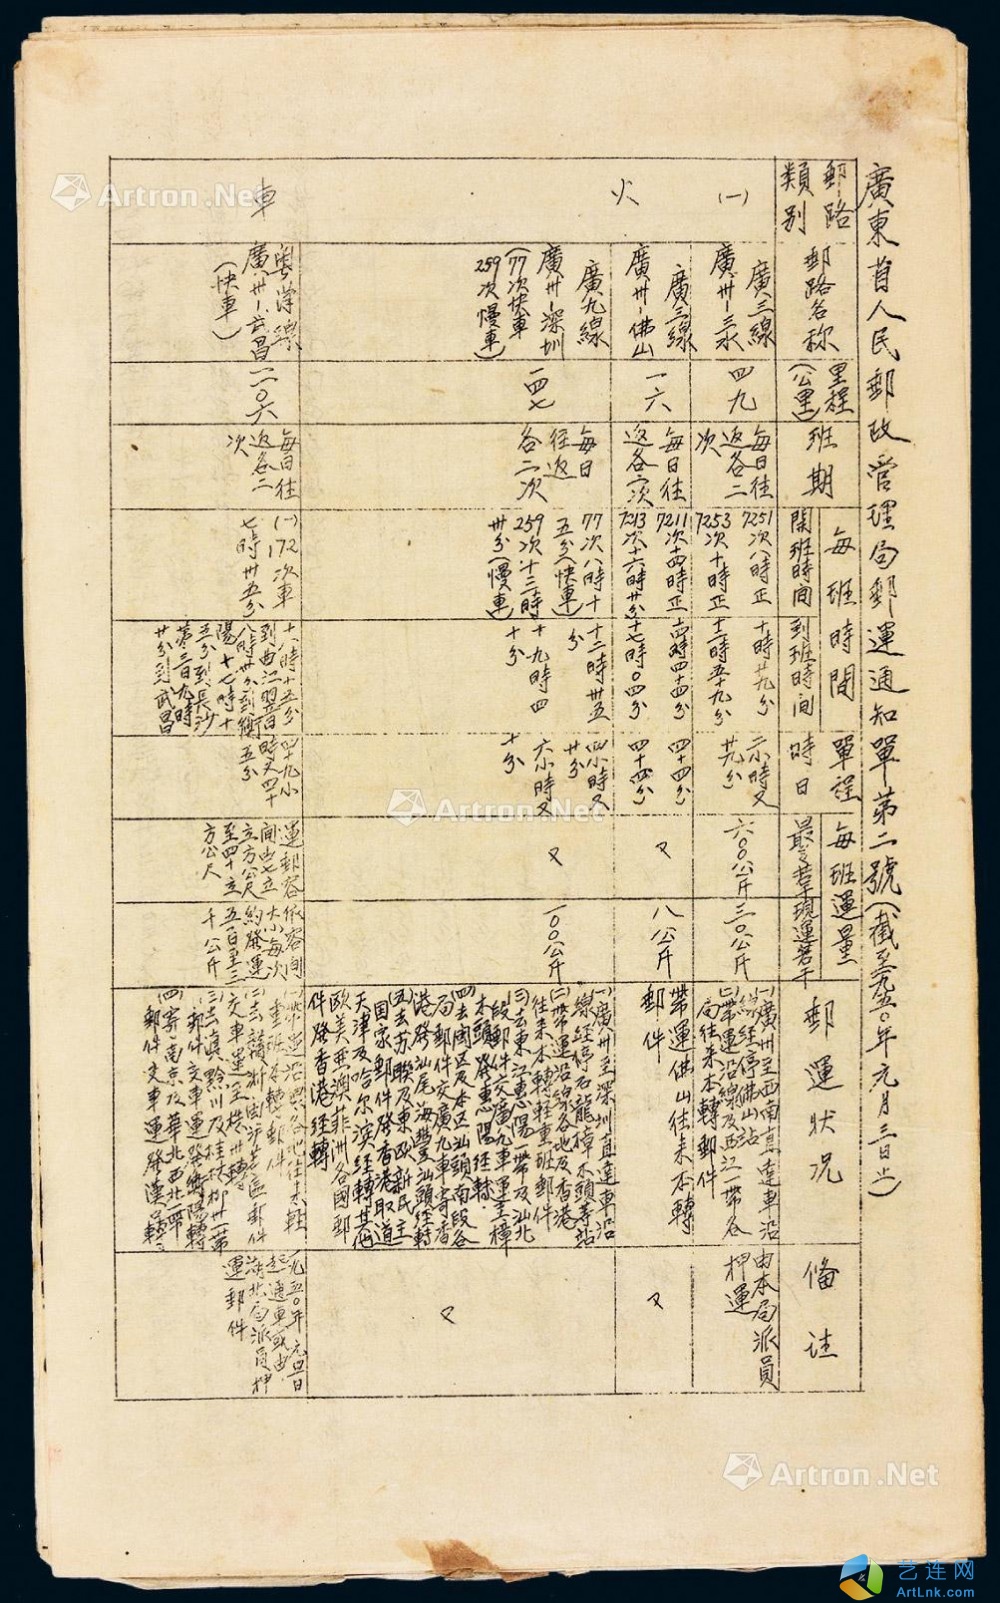 廣東省人民郵政管理局郵運通知單第二號(截至一九五〇年元月三日止)
郵路
類別
郵路名称
里程
(公里)
班期
每班時間
開班時間
到班時間
單程
時日
每班運量
最多若干
現運若干
郵運状况
備註
(一)
火
車
廣三線
廣州-三水
四九
每日往
返各二
次
7251次八時正
7253次十時正
十時廿九分
十二時五十九分
二小時又
廿九分
六〇〇公斤
三〇公斤
(一)廣州至西南直達車沿
線經停佛山站
(二)帶運沿線及西江一帶各
局往来本轉郵件
由本局派員
押運
廣三線
廣州-佛山
一六
每日往
返各一次
7211次十四時正
7213次十六時廿分
十四時四十四分
十七時〇四分
四十四分
四十四分
又
八公斤
帶運佛山往来本轉
郵件
又
廣九線
廣州-深圳
(77次快車
259次慢車)
一四七
每日
往返
各二次
77次八時十
五分(快車)
259次十三時
卅分(慢車)
十二時卅五
分
十九時四
十分
四小時又
廿分
六小時又
十分
又
一〇〇公斤
(一)廣州至深圳直達車沿
線經停石龍樟木頭等站
(二)帶運沿線各地及香港
往来本轉輕重班郵件
(三)去東江惠陽一帶及汕北
段郵件交廣九車運至樟
木頭發惠陽經轉
(四)去閩区及本区汕頭南段各
局郵件交廣九車寄香
港發汕尾海豐汕頭經轉
(五)去苏联及東欧新民主
国家郵件發香港取道
天津及哈尔濱經轉其他
欧美亜澳菲洲各國郵
件發香港經轉
又
粤漢線
廣州-武昌
(快車)
一一〇六
每日往
返各二
次
(一)172次車
七時卅五分
十八時十五分
到曲江翌日
八時廿分到衡
陽十七時十
五分到長沙
第三日九時
廿分到武昌
四十九小
時又四十
五分
運郵容
間由七立
立方公尺
至四十立
方公尺
依容间
大小每次
約發運
五百至三
千公斤
(一)帶運沿線各地往来輕
重班本轉郵件
交車運至株州轉
(三)去滇黔川及桂林柳州一帶
郵件交車運發衡陽轉
(四)寄南京及華北西北一帶
郵件交車運發漢口轉
一九五〇年元旦日
起通車或由
湖北局派員押
運郵件
Artron.Net
Artron.Net
Artron.Net
艺连网
ArtLnk.com